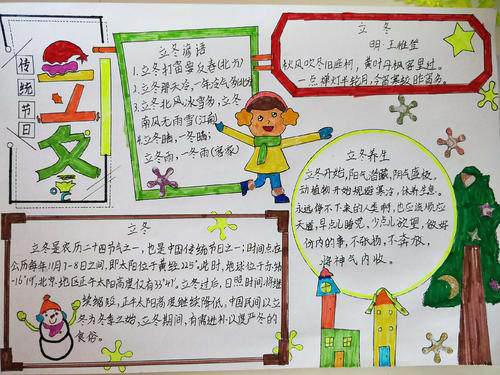 传统节日
立冬
立冬谚语
1.立冬打雷要反春(北方)
2.立冬那天冷,一年冷气多(北方)
3.立冬北风冰雪多,立冬
南风无雨雪(江南)
4.立冬晴,一冬晴;
立冬雨,一冬雨(客家)
立冬
明·王稚登
秋风吹尽旧庭柯,黄叶丹枫客里过。
一点禅灯半轮月,今宵寒较昨宵多。
立冬养生
立冬开始,阳气潜藏,阴气盛极,
动植物开始规避寒冷,休养生息。
永远停不下来的人类啊,也应该顺应
天道,早点儿睡觉,少点儿欲望,做好
份内的事,不
将神气内收。
立冬
立冬是农历二十四节气之一,也是中国传统节日之一;时间点在
公历每年11月7-8日之间,即太阳位于黄经225°
北京地区正午太阳高度仅有33°47′。立冬过后,日照时间将继
续缩短,正午太阳高度继续降低,中国民间以立
冬为冬季之始,立冬期间,有需进补以度严冬的
食俗。